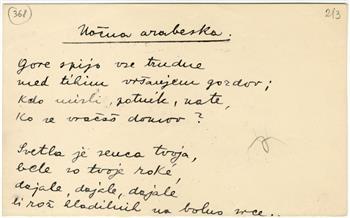 (368)
2/3
Nočna arabeska.
Gore spijo vse trudne
med tihim vršanjem gozdov;
kdo misli, potnik, nate,
ko se vračaš domov?
Svetla je senca tvoja,
bele so tvoje roké,
dajale, dajale, dajale
ti rož hladilnih na bolno srce..